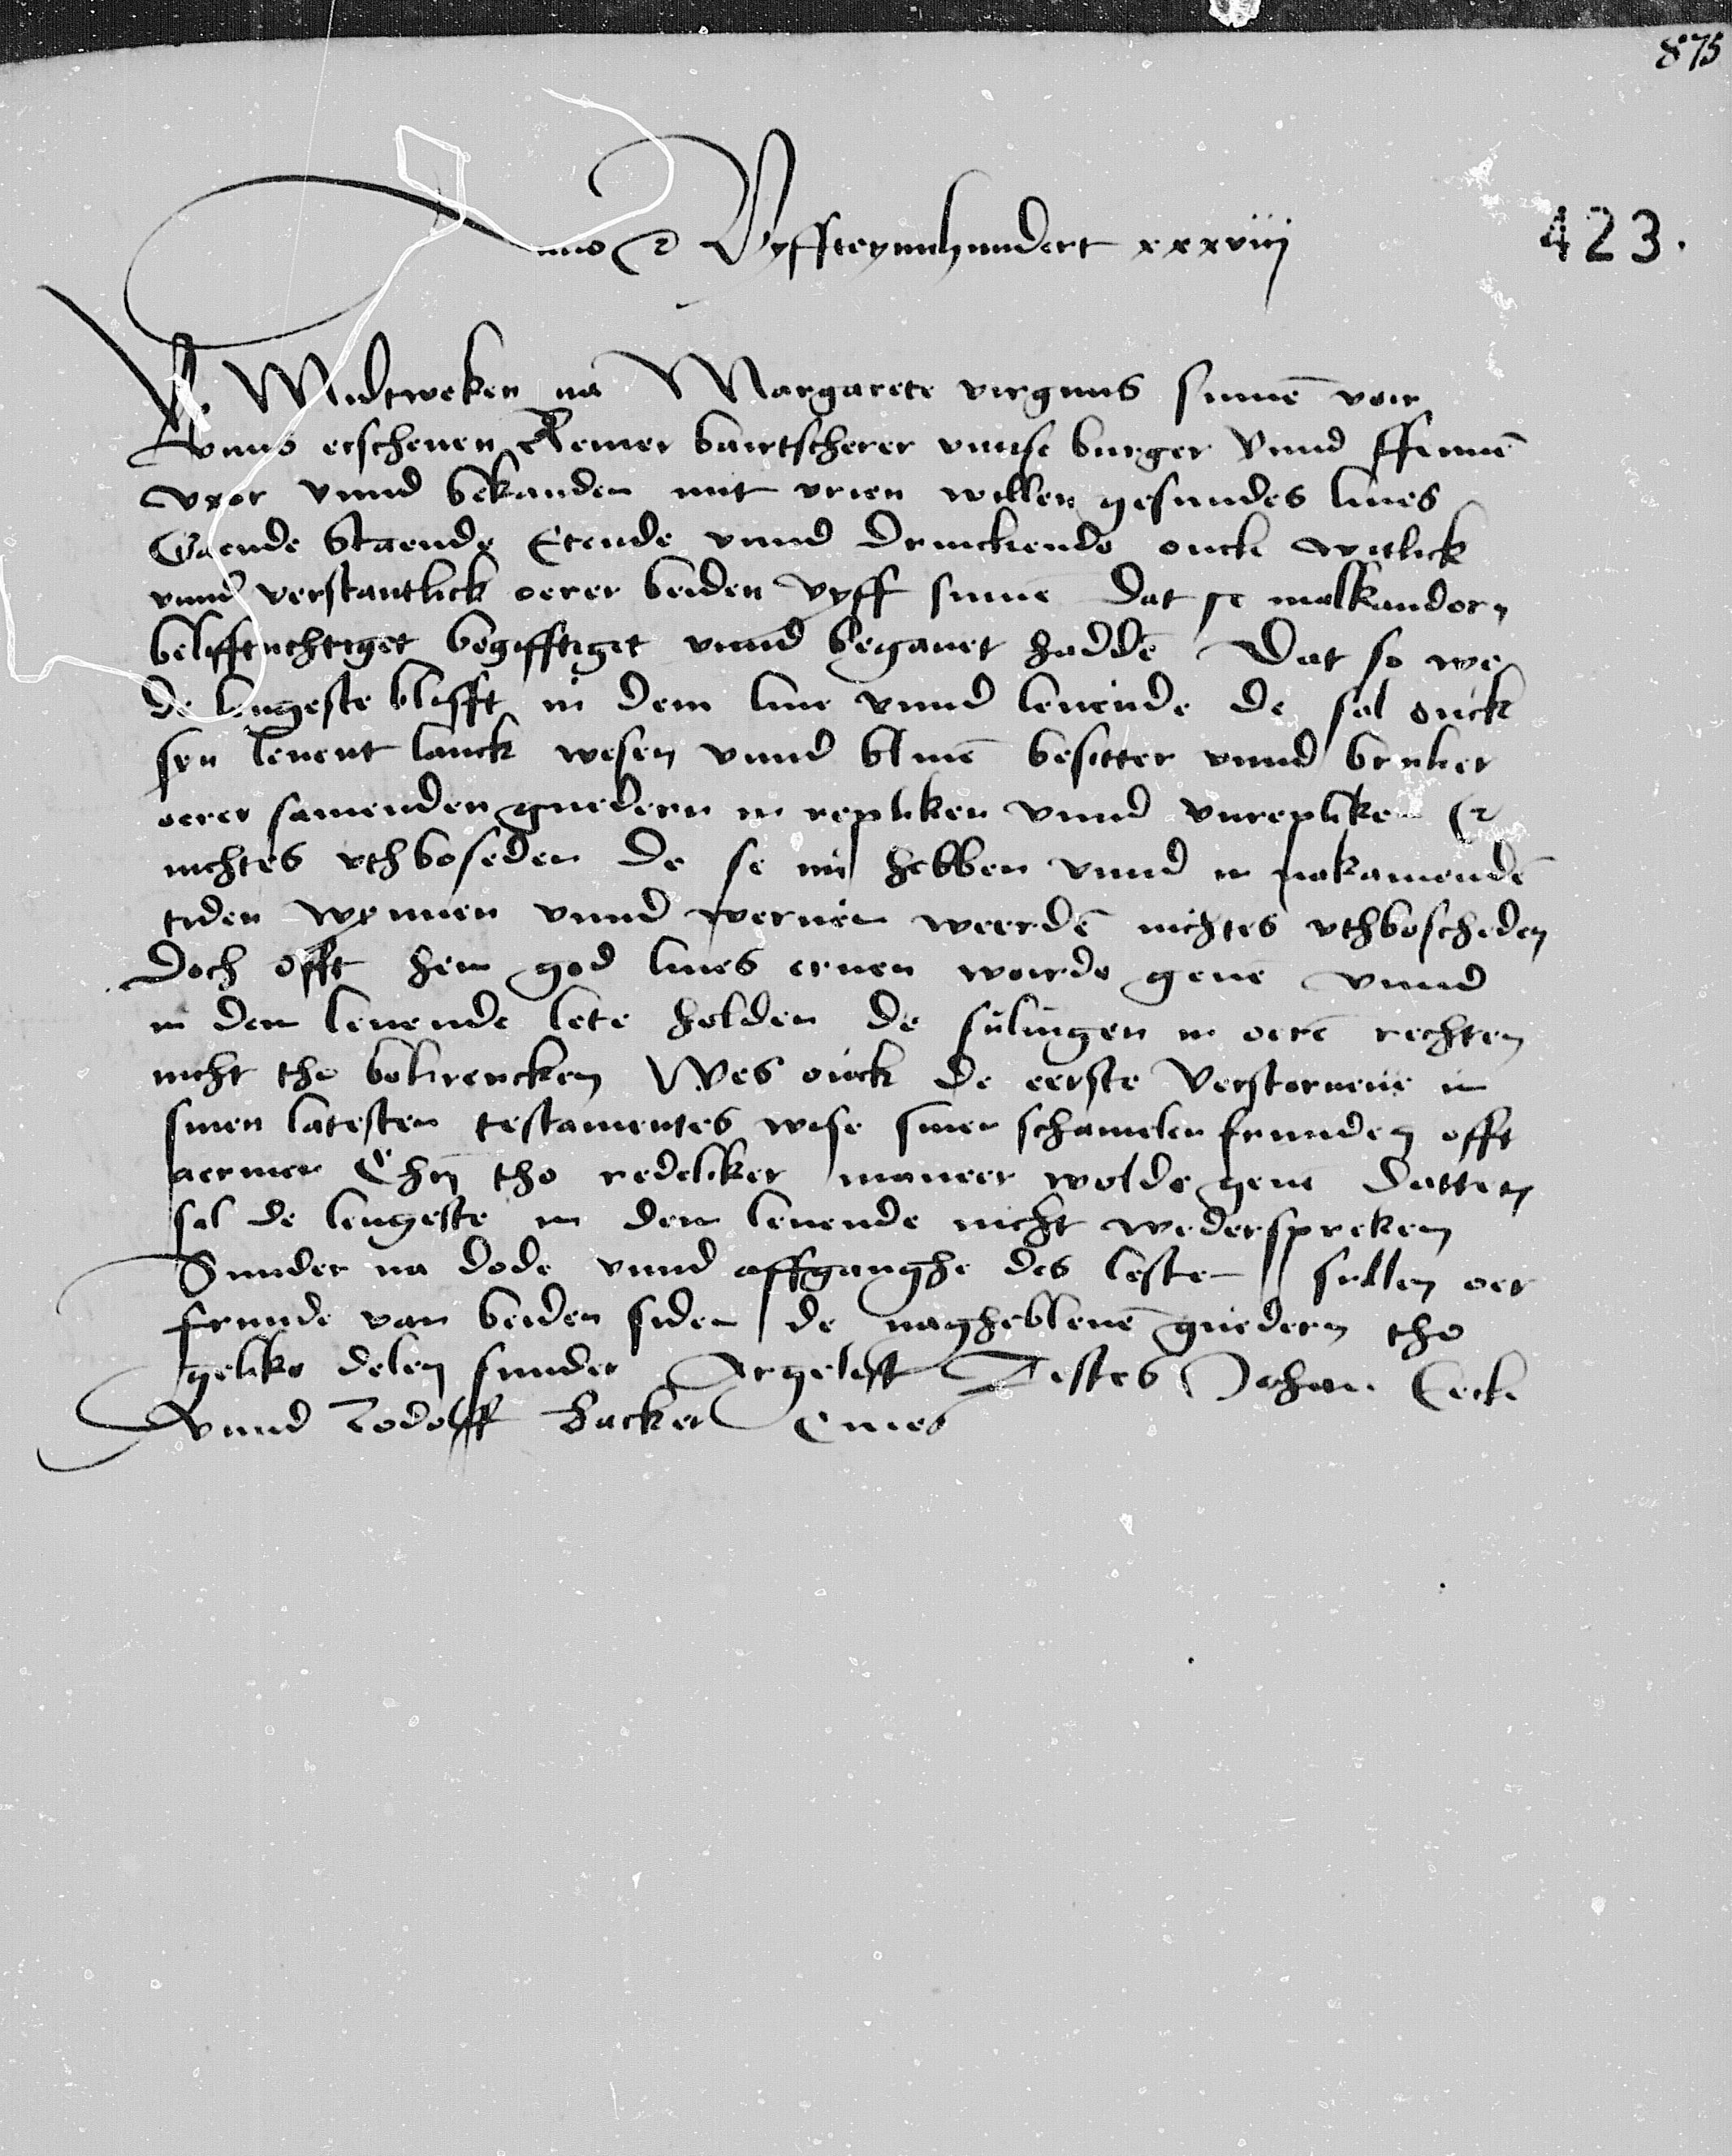 875
423.
Anno &c Vyffteynnhundert xxxviij
Up Midtweken na Margarete virginis sinnē voir
Vnns erschenen Reiner bairtscherer vnnse burger Vnnd ffennē
vxor vnnd bekanden mit vrien willen gesundes liues
Gaende staende Etende vnnd drinckende ouck witlick
vnnd verstantlick oerer beiden vyff sinne Dat se malkandern
belifftuchtiget begifftiget vnnd begauet haddē Dat so we
de lengeste blifft in dem liue vnnd leuende de sal ouck
syn leuent lanck wesen vnnd bliuē besitter vnnd bruker
oerer samenden guedern in repliken vnnd vnrepliken &c
nichtes vthboseden De se nu hebben vnnd in nakamendē
tiden wynnen vnnd weruen weerdē nichtes vthboscheden
Doch offt hem god liues eruen worde geuē vnnd
in den leuende lete holden de suluigen in oerē rechten
nicht tho bekrencken Wes ouck de eerste Verstoruene in
sinen latesten testamentes wise sinen schamelen frunden offt
aermen Chrī tho redeliker maneer wolde geuē Datten
sal de lengeste in den leuende nicht wederspreken
Sunder na dode vnnd affganghe des lesten sullen oer
frunde van beiden siden de naghebleuē guedern tho
gelike delen sunder Argelist Testes Johan Eeck
Vnnd Rodolff Backer Ciues